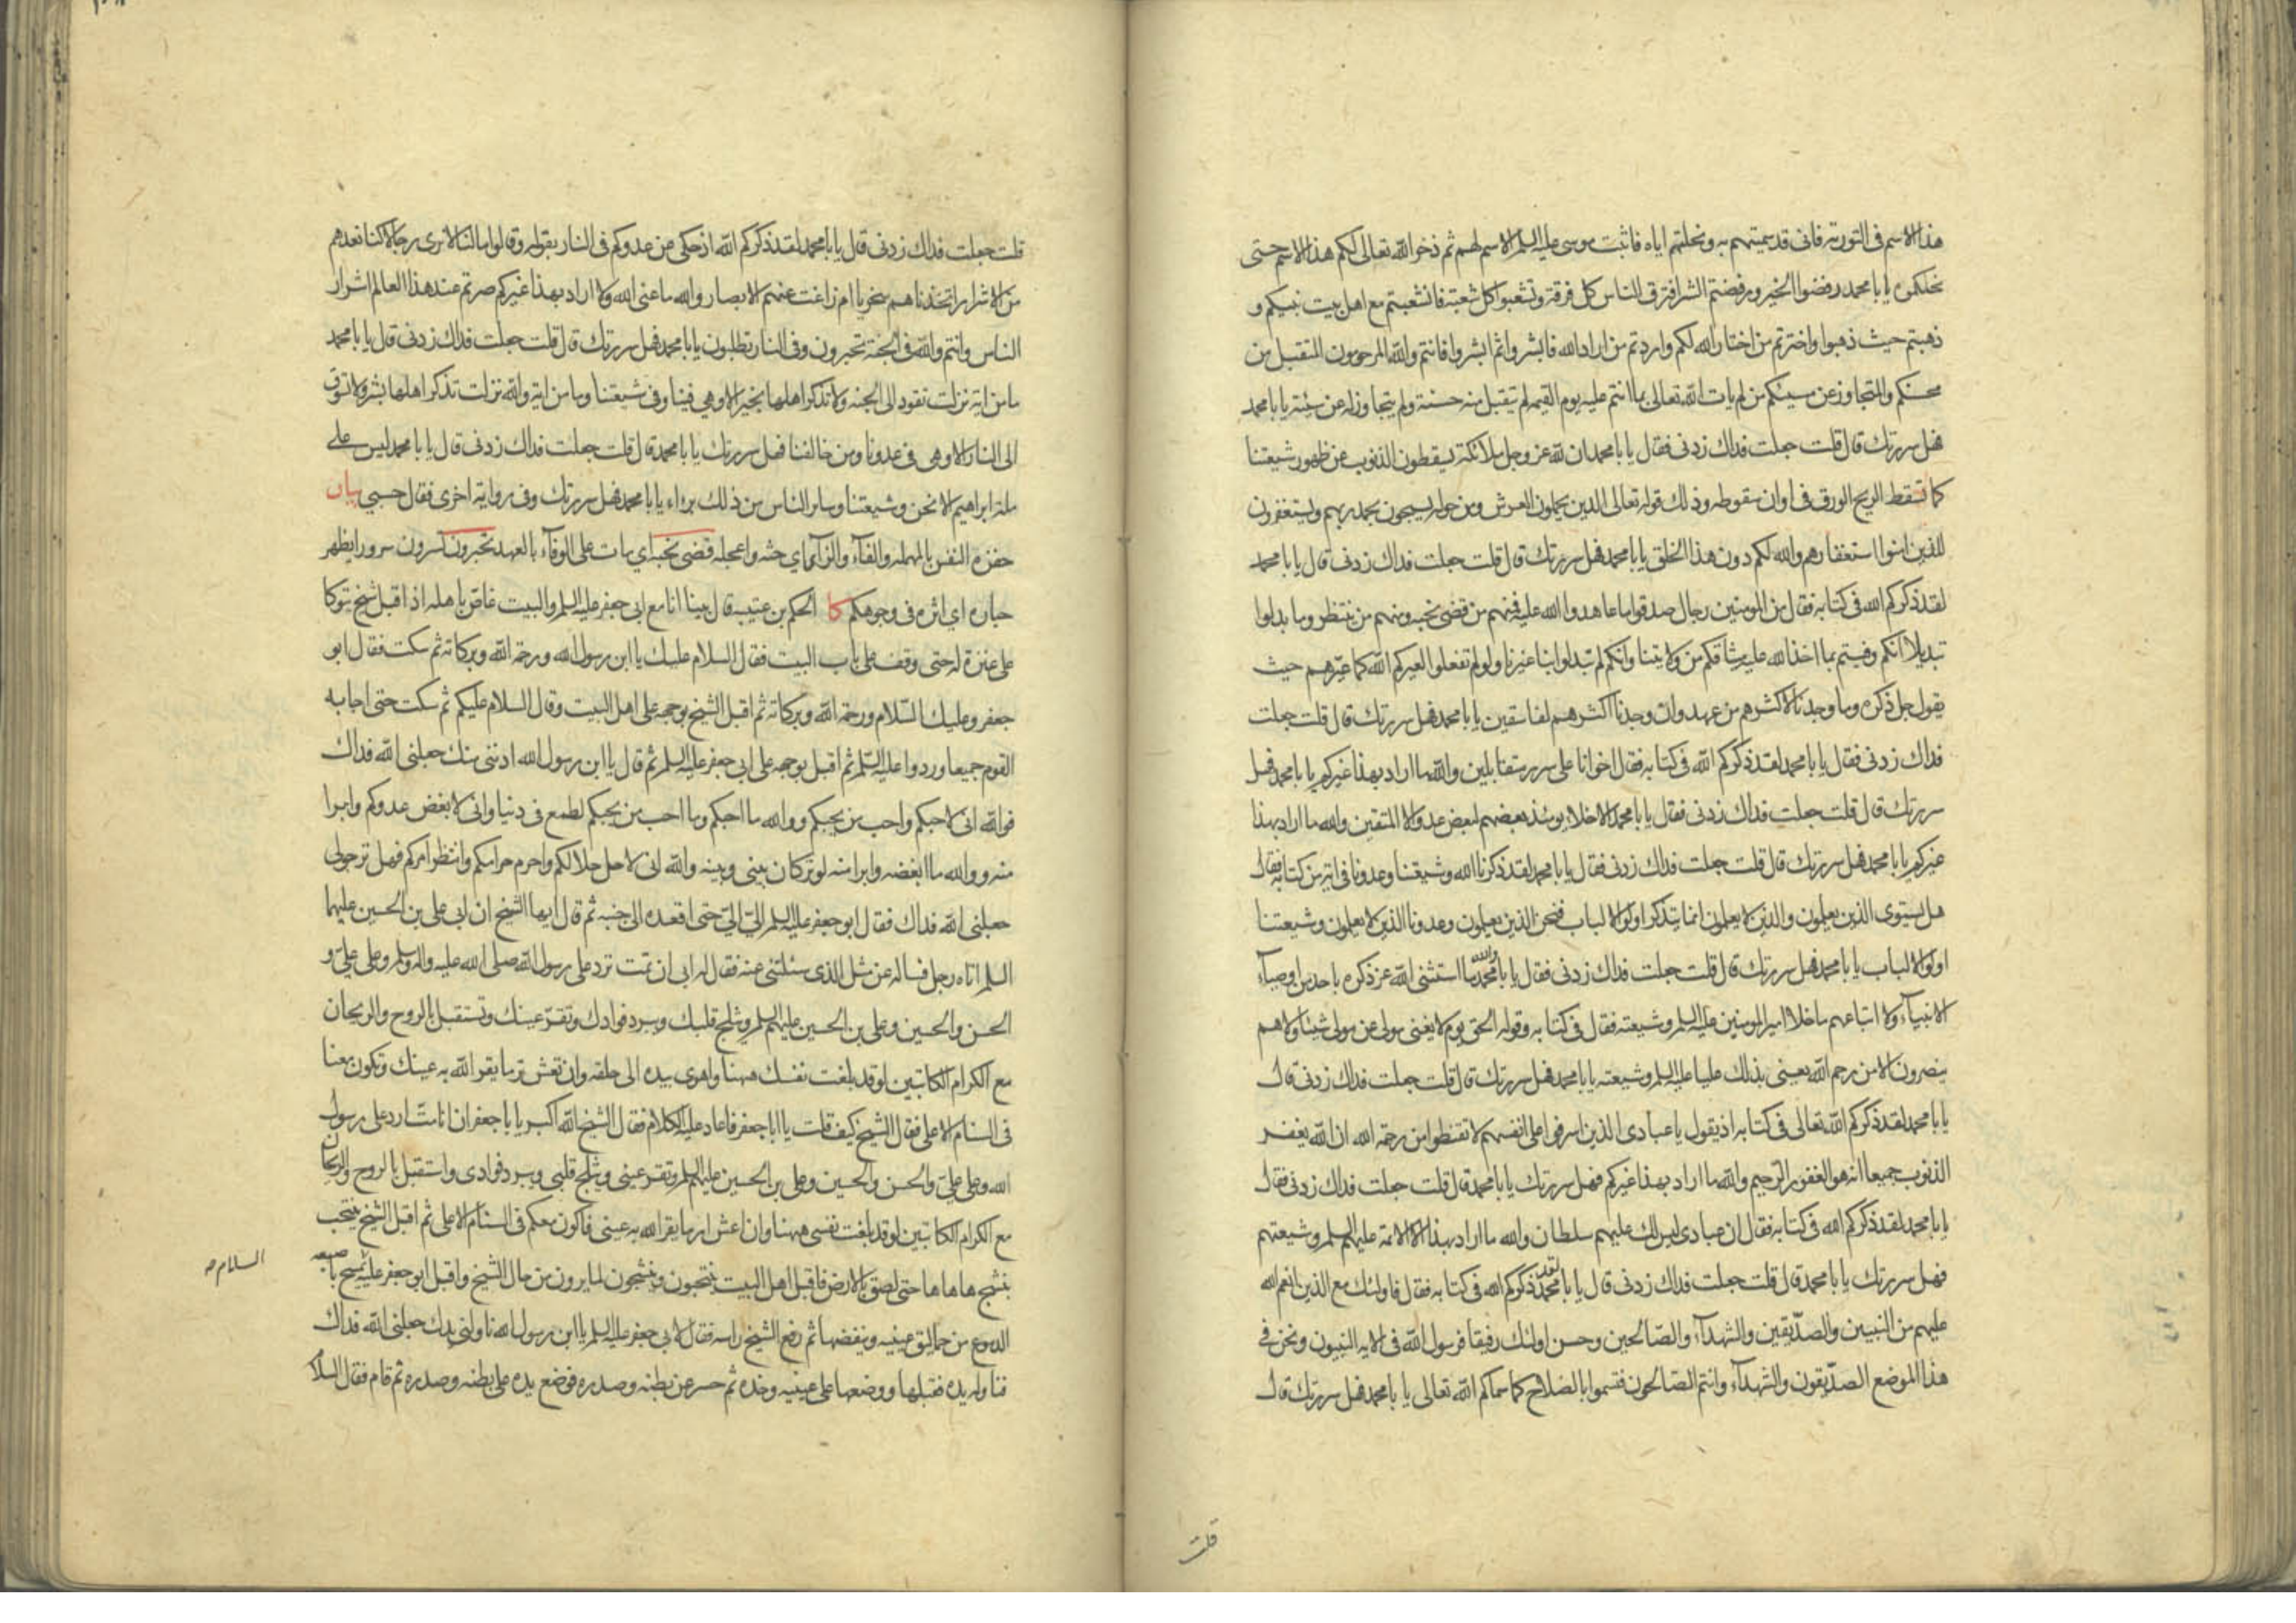 هذا الاسم فى التورية فانى قد سميتهم به ونحلتهم اياه فاثبت موسى عليه السلم الاسم لهم ثم ذخر الله تعالى لكم هذا الاسم حتى
نحلكموه يا با محمد رفضوا الخير ورفضتم الشر افترق الناس كل فرقة وتشعبوا كل شعبة فانشعبتم مع اهل بيت نبيكم و
ذهبتم حيث ذهبوا واخترتم من اختار الله لكم واردتم من اراد الله فابشروا ثم ابشروا فانتم والله المرحومون المتقبل من
محسنكم والمتجاوز عن مسيئكم من لم يات الله تعالى بما انتم عليه يوم القيمة لم يتقبل منه حسنة ولم يتجاوز له عن سيئة يا با محمد
فهل سررتك قال قلت جعلت فداك زدنى فقال يا با محمد ان لله عز وجل ملائكة يسقطون الذنوب عن ظهور شيعتنا
كما تسقط الريح الورق فى اوان سقوطه وذلك قوله تعالى الذين يحملون العرش ومن حوله يسبحون بحمد ربهم ويستغفرون
للذين امنوا استغفارهم والله لكم دون هذا الخلق يا با محمد فهل سررتك قال قلت جعلت فداك زدنى قال يا با محمد
لقد ذكركم الله فى كتابه فقال من المومنين رجال صدقوا ما عاهدوا الله عليه فمنهم من قضى نحبه ومنهم من ينتظر وما بدلوا
تبديلا انكم وفيتم بما اخذ الله عليه ميثاقكم من ولايتنا وانكم لم تبدلوا بنا غيرنا ولو لم تفعلوا لعيركم الله كما عيرهم حيث
يقول جل ذكره وما وجدنا لاكثرهم من عهد وان وجدنا اكثرهم لفاسقين يا با محمد فهل سررتك قال قلت جعلت
فداك زدنى فقال يا با محمد لقد ذكركم الله فى كتابه فقال اخوانا على سرر متقابلين والله ما اراد بهذا غيركم يا با محمد فهل
سررتك قال قلت جعلت فداك زدنى فقال يا با محمد الاخلاء يومئذ بعضهم لبعض عدو الا المتقين والله ما اراد بهذا
غيركم يا با محمد فهل سررتك قال قلت جعلت فداك زدنى فقال يا با محمد لقد ذكرنا الله وشيعتنا وعدونا فى اية من كتابه فقال
هل يستوى الذين يعلمون والذين لا يعلمون انما يتذكر اولوا الالباب فنحن الذين يعلمون وعدونا الذين لا يعلمون وشيعتنا
اولوا الالباب يا با محمد فهل سررتك قال قلت جعلت فداك زدنى فقال يا با محمد والله ما استثنى الله عز ذكره باحد من اوصياء
الانبياء ولا اتباعهم ما خلا امير المومنين عليه السلم وشيعته فقال فى كتابه وقوله الحق يوم لا يغنى مولى عن مولى شيئا ولا هم
ينصرون الا من رحم الله يعنى بذلك عليا عليه السلم وشيعته يا با محمد فهل سررتك قال قلت جعلت فداك زدنى قال
يا با محمد لقد ذكركم الله تعالى فى كتابه اذ يقول يا عبادى الذين اسرفوا على انفسهم لا تقنطوا من رحمة الله ان الله يغفر
الذنوب جميعا انه هو الغفور الرحيم والله ما اراد بهذا غيركم فهل سررتك يا با محمد قال قلت جعلت فداك زدنى فقال
يا با محمد لقد ذكركم الله فى كتابه فقال ان عبادى ليس لك عليهم سلطان والله ما اراد بهذا الا الائمة عليهم السلم وشيعتهم
فهل سررتك يا با محمد قال قلت جعلت فداك زدنى قال يا با محمد لقد ذكركم الله فى كتابه فقال فاولئك مع الذين انعم الله
عليهم من النبيين والصديقين والشهداء والصالحين وحسن اولئك رفيقا فرسول الله فى الاية النبيون ونحن فى
هذا الموضع الصديقون والشهداء وانتم الصالحون فتسموا بالصلاح كما سماكم الله تعالى يا با محمد فهل سررتك قال
قلت
قلت جعلت فداك زدنى قال يا با محمد لقد ذكركم الله اذ حكى عن عدوكم فى النار بقوله وقالوا ما لنا لا نرى رجالا كنا نعدهم
من الاشرار اتخذناهم سخريا ام زاغت عنهم الابصار والله ما عنى الله ولا اراد بهذا غيركم صرتم عند هذا العالم اشرار
الناس وانتم والله فى الجنة تحبرون وفى النار تطلبون يا با محمد فهل سررتك قال قلت جعلت فداك زدنى قال يا با محمد
ما من اية نزلت تقود الى الجنة ولا تذكر اهلها بخير الا وهى فينا وفى شيعتنا وما من اية والله نزلت تذكر اهلها بشر ولا تسوق
الى النار الا وهى فى عدونا ومن خالفنا فهل سررتك يا با محمد قال قلت جعلت فداك زدنى قال يا با محمد ليس على
ملة ابراهيم الا نحن وشيعتنا وساير الناس من ذلك براء يا با محمد فهل سررتك وفى رواية اخرى فقال حسبى بيان
حفزه النفس بالمهملة والفاء والزاى اي حثه واعجله قضى نحبه اي مات على الوفاء بالعهد تحبرون تسرون سرورا يظهر
حباره اي اثره فى وجوهكم كا الحكم بن عتيبة قال بينا انا مع ابى جعفر عليه السلم والبيت غاص باهله اذ اقبل شيخ يتوكا
على عنزة له حتى وقف على باب البيت فقال السلام عليك يا ابن رسول الله ورحمة الله وبركاته ثم سكت فقال ابو
جعفر وعليك السلام ورحمة الله وبركاته ثم اقبل الشيخ بوجهه على اهل البيت وقال السلام عليكم ثم سكت حتى اجابه
القوم جميعا وردوا عليه السلم ثم اقبل بوجهه على ابى جعفر عليه السلم ثم قال يا ابن رسول الله ادننى منك جعلنى الله فداك
فوالله انى لاحبكم واحب من يحبكم ووالله ما احبكم وما احب من يحبكم لطمع فى دنيا وانى لابغض عدوكم وابرا
منه ووالله ما ابغضه وابرا منه لوتر كان بينى وبينه والله انى لاحل حلالكم واحرم حرامكم وانتظر امركم فهل ترجو لى
جعلنى الله فداك فقال ابو جعفر عليه السلم الىّ الىّ حتى اقعده الى جنبه ثم قال ايها الشيخ ان ابى على بن الحسين عليهما
السلم اتاه رجل فساله عن مثل الذى سئلتنى عنه فقال له ابى ان تمت ترد على رسول الله صلى الله عليه واله وسلم وعلى على و
الحسن والحسين وعلى بن الحسين عليهم السلم ويثلج قلبك ويبرد فوادك وتقر عينك وتستقبل بالروح والريحان
مع الكرام الكاتبين لو قد بلغت نفسك ههنا واهوى بيده الى حلقه وان تعش تر ما يقر الله به عينك وتكون معنا
فى السنام الاعلى فقال الشيخ كيف قلت يا ابا جعفر فاعاد عليه الكلام فقال الشيخ الله اكبر يا با جعفر ان انا مت ارد على رسول
الله وعلى على والحسن والحسين وعلى بن الحسين عليهم السلم وتقر عينى ويثلج قلبى ويبرد فوادى واستقبل بالروح والريحان
مع الكرام الكاتبين لو قد بلغت نفسى ههنا وان اعش ار ما يقر الله به عينى فاكون معكم فى السنام الاعلى ثم اقبل الشيخ ينتحب
ينشج ها ها ها حتى لصق بالارض فاقبل اهل البيت ينتحبون وينشجون لما يرون من حال الشيخ واقبل ابو جعفر عليه يمسح باصبعه
السلام صح
الدموع من حماليق عينيه وينفضها ثم رفع الشيخ راسه فقال لابى جعفر عليه السلم يا ابن رسول الله ناولنى يدك جعلنى الله فداك
فناوله يده فقبلها ووضعها على عينيه وخده ثم حسر عن بطنه وصدره فوضع يده على بطنه وصدره ثم قام فقال السلام